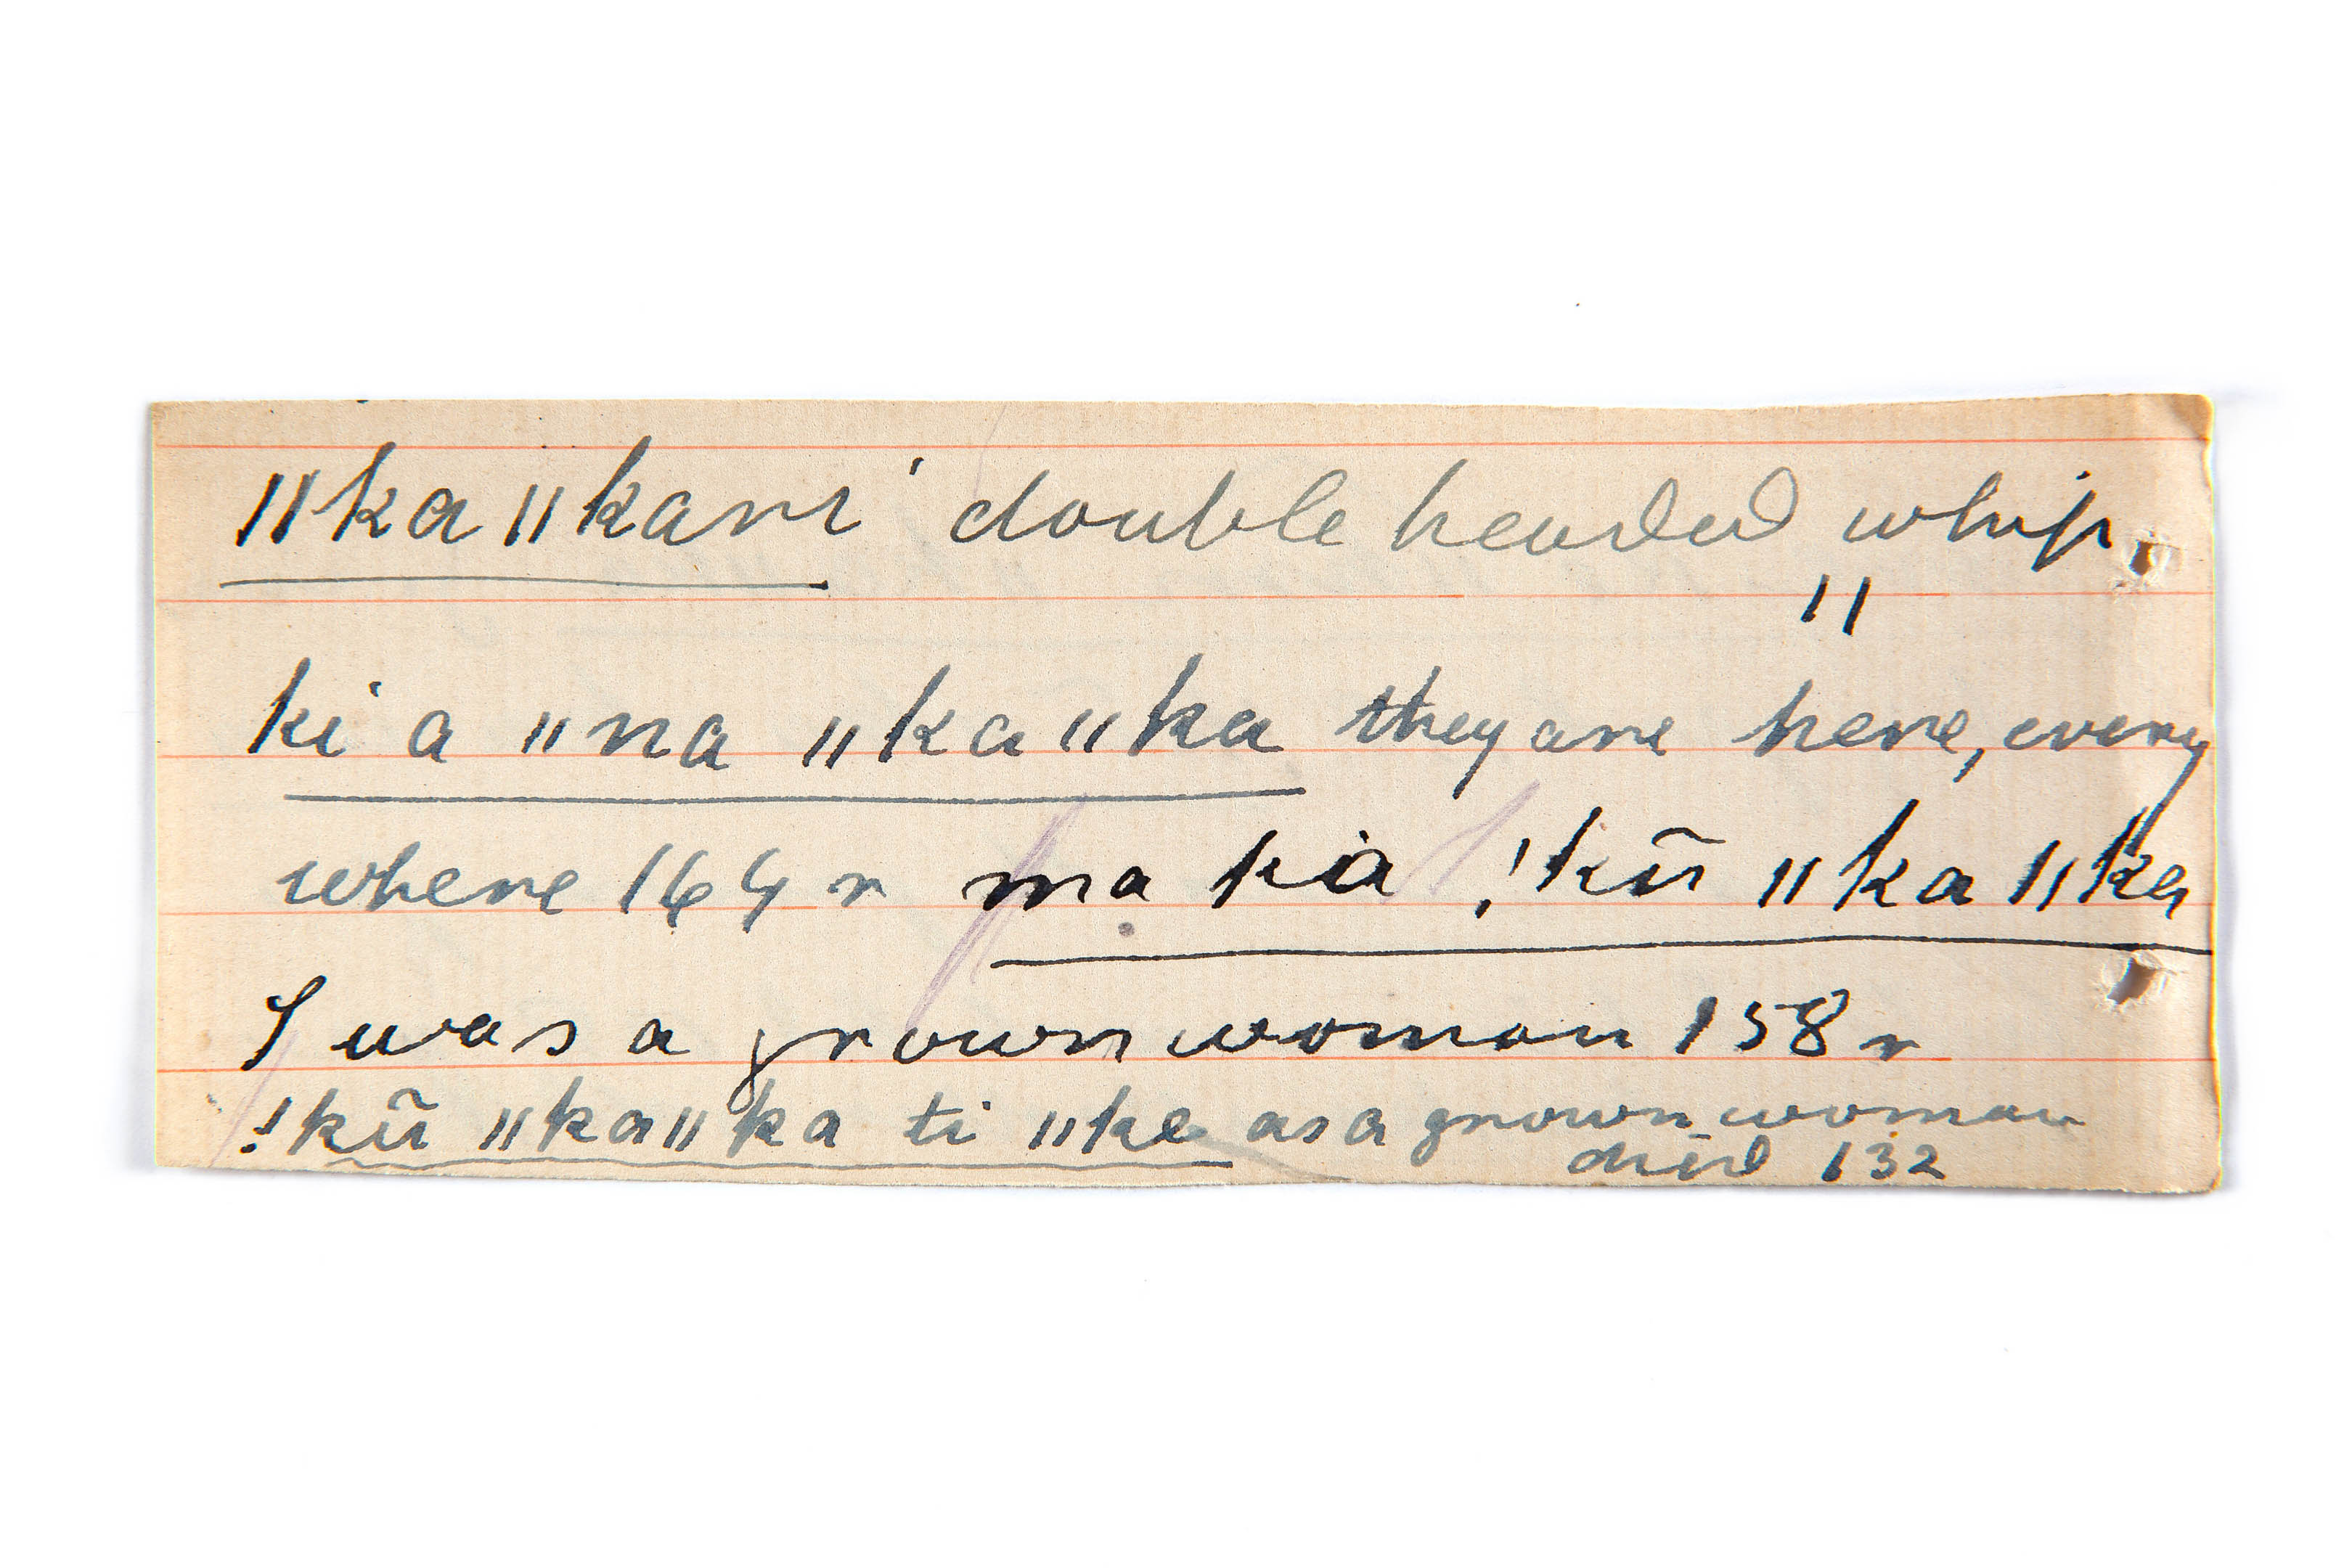 ǁkaǁkani double headed whip.
ǁ
ki a ǁna ǁkaǁka they are here, every
where 164 r ma ka !kũ ǁkaǁka
I was a grown woman 158 r
!kũ ǁkaǁka ti ǁke as a grown woman
died 132